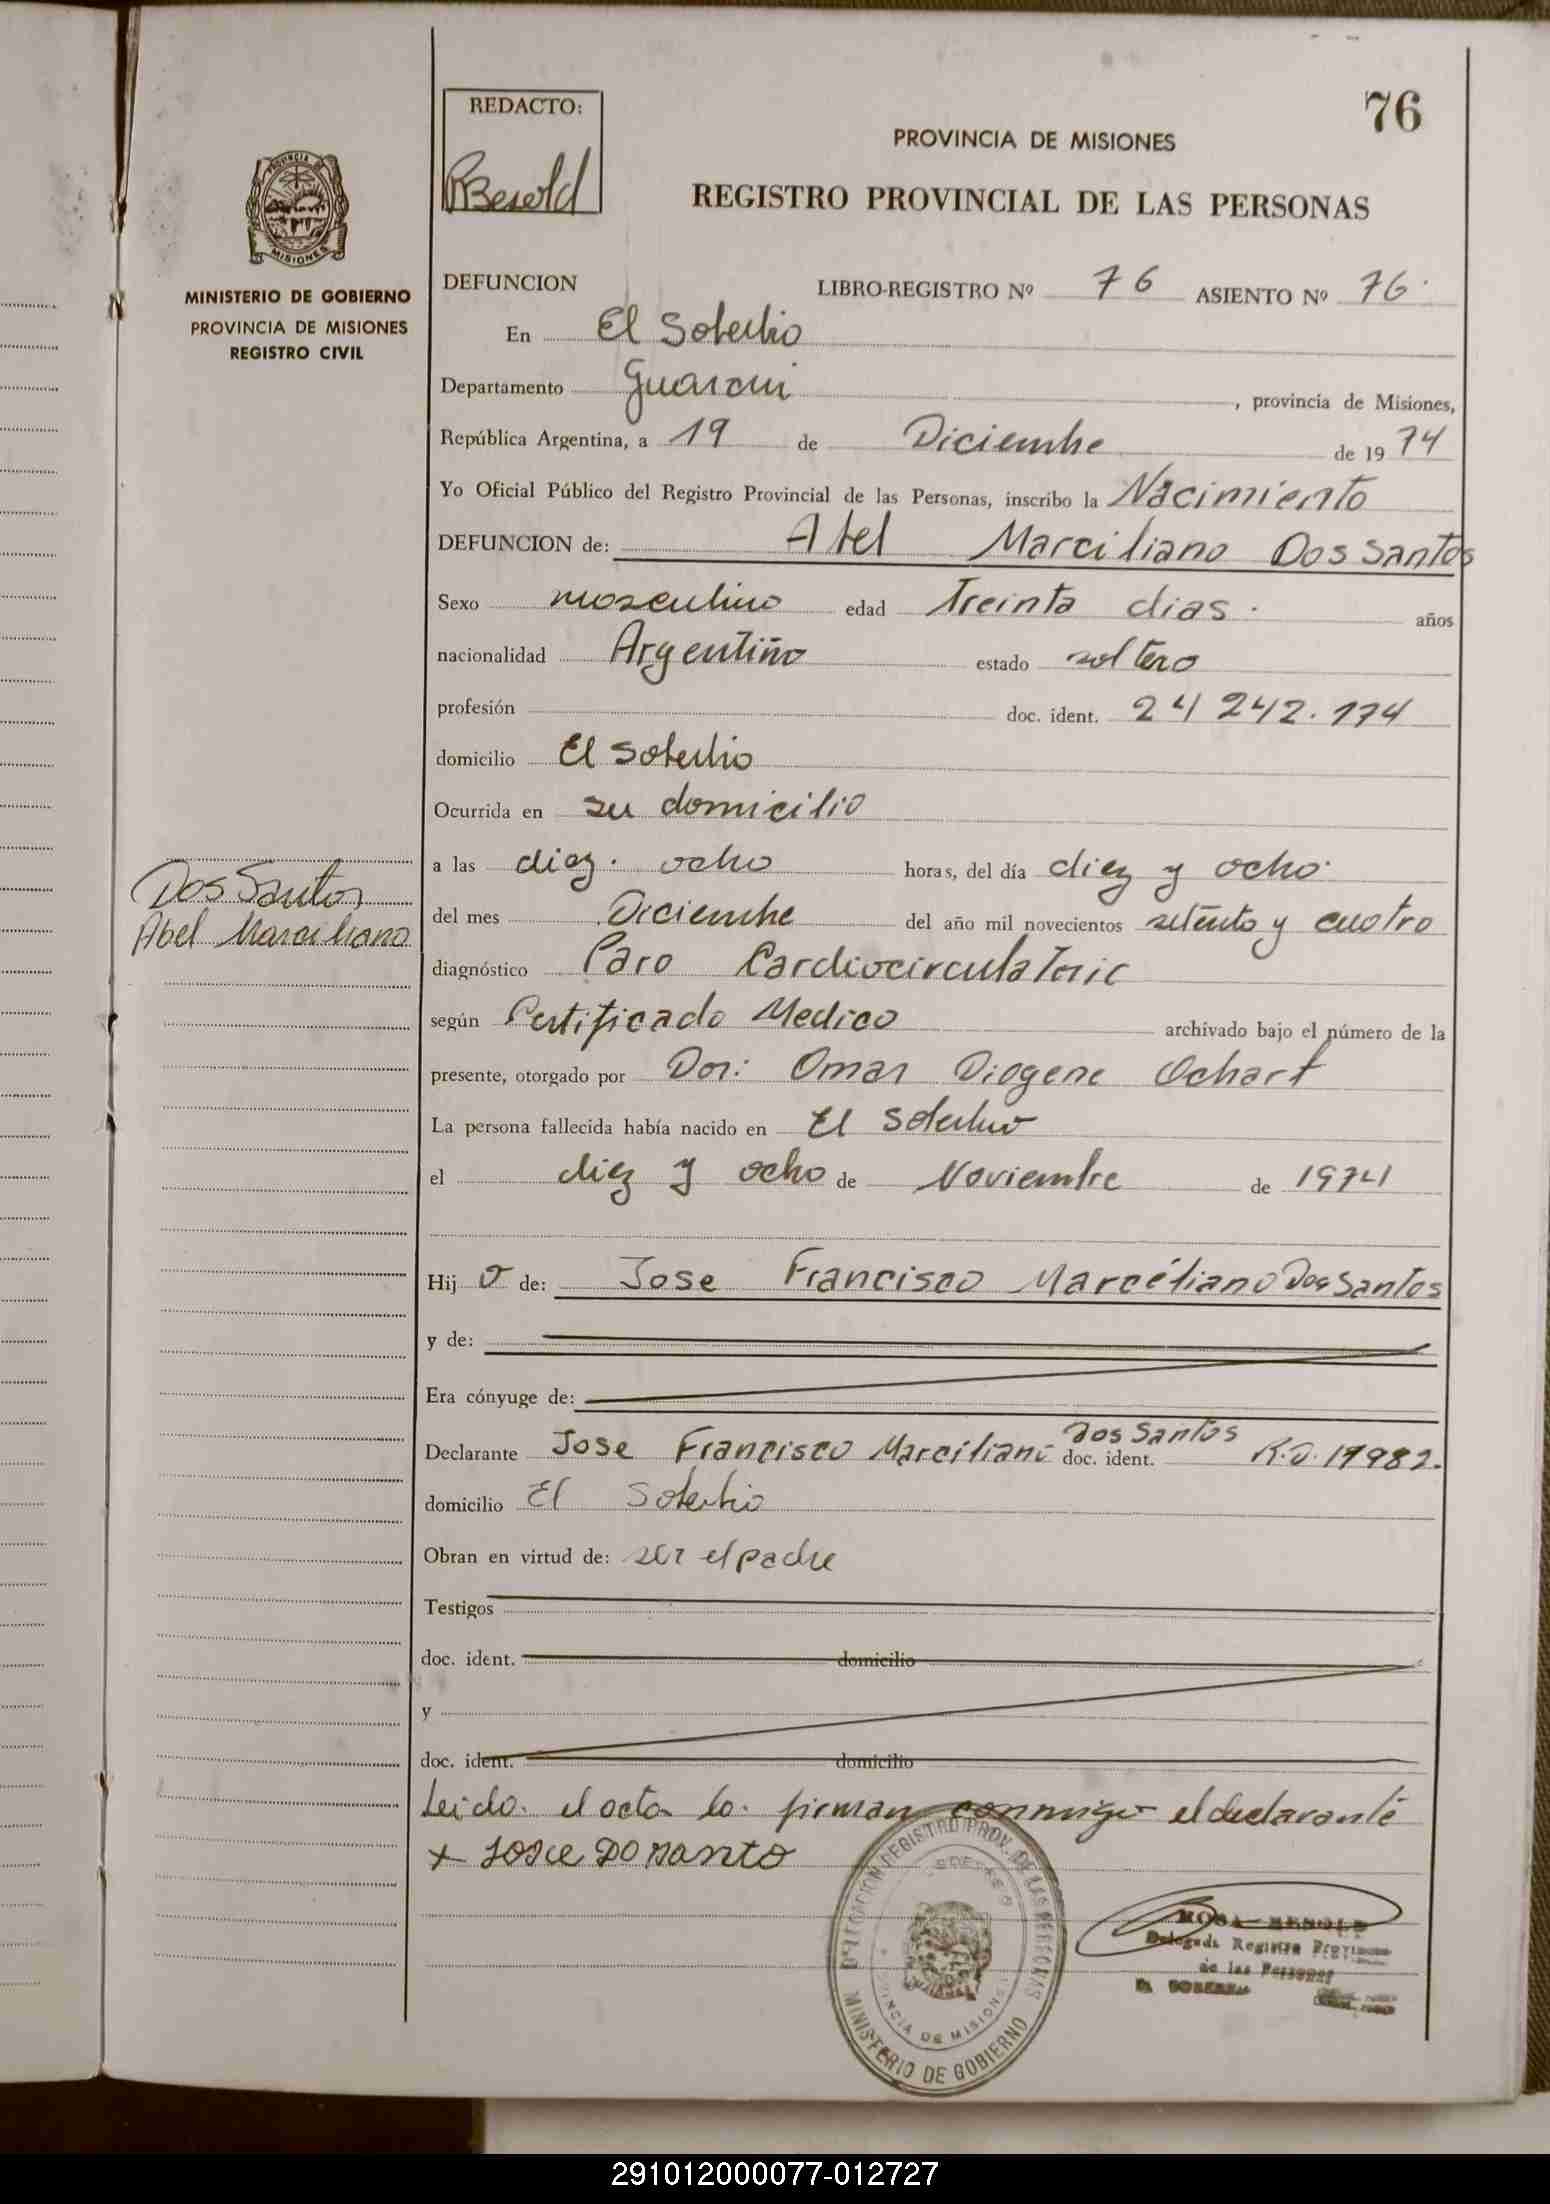 76
REDACTO:
RBesold
PROVINCIA DE MISIONES
REGISTRO PROVINCIAL DE LAS PERSONAS
PROVINCIA DE
MISIONES
MINISTERIO DE GOBIERNO
PROVINCIA DE MISIONES
REGISTRO CIVIL
DEFUNCION LIBRO-REGISTRO Nº 76 ASIENTO Nº 76.
En El Soberbio
Departamento Guarani , provincia de Misiones,
República Argentina, a 19 de Diciembre de 1974
Yo Oficial Público del Registro Provincial de las Personas, inscribo la Nacimiento
DEFUNCION de: Abel Marciliano Dos Santos
Sexo masculino edad Treinta dias. años
nacionalidad Argentino estado soltero
profesión doc. ident. 24 242.174
domicilio El Soberbio
Ocurrida en su domicilio
a las diez. ocho horas, del día diez y ocho.
del mes Diciembre del año mil novecientos setenta y cuatro
diagnóstico Paro Cardiocirculatoric
según Certificado Medico archivado bajo el número de la
presente, otorgado por Dor: Omar Diogene Ochart
La persona fallecida había nacido en El Soberbio
el diez y ocho de Noviembre de 1974
Hij o de: Jose Francisco Marcéliano Dos Santos
y de:
Era cónyuge de:
Declarante Jose Francisco Marciliano Dos Santos doc. ident. R.D. 17982.
domicilio El Soberbio
Obran en virtud de: ser el padre
Testigos
doc. ident. domicilio
y
doc. ident. domicilio
Leido. el acta la. firman conmigo el declarante
+ JOSE DO SANTO
Dos Santos
Abel Marciliano
DELEGACION REGISTRO PROV. DE LAS PERSONAS
MINISTERIO DE GOBIERNO
PROVINCIA DE MISIONES
ROSA BESOLD
Delegada Registro Provincial
de las Personas
EL SOBERBIO
291012000077-012727